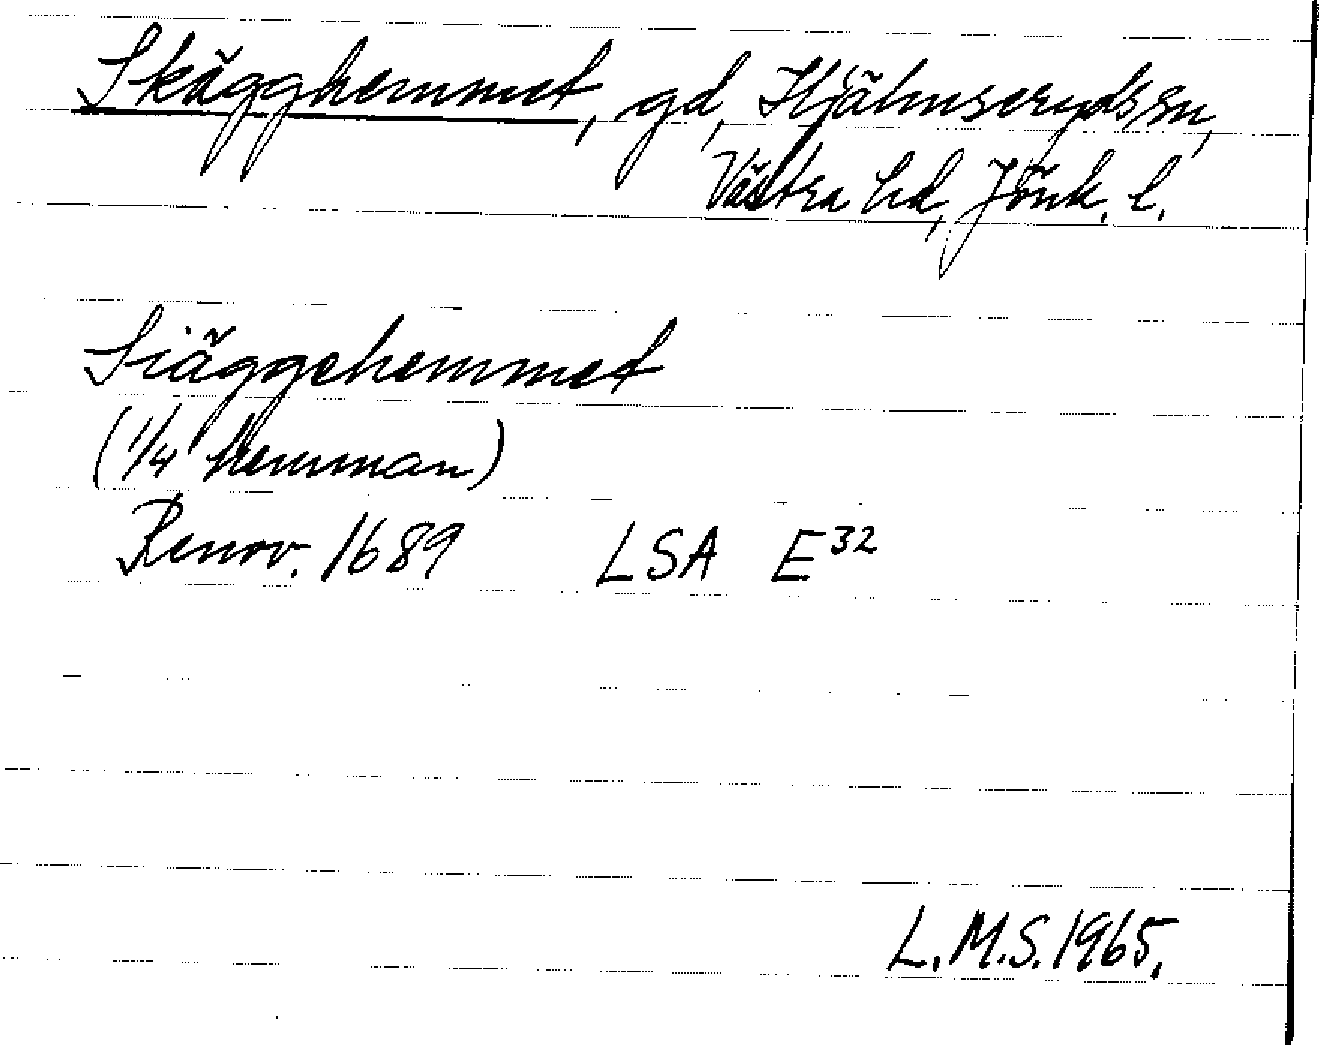 Skägghemmet, gd, Hjälmseryds sn,
Västra hd, Jönk. l.
Siäggehemmet
(1/4 hemman)
Renov. 1689 LSA E32
L.M.S. 1965.